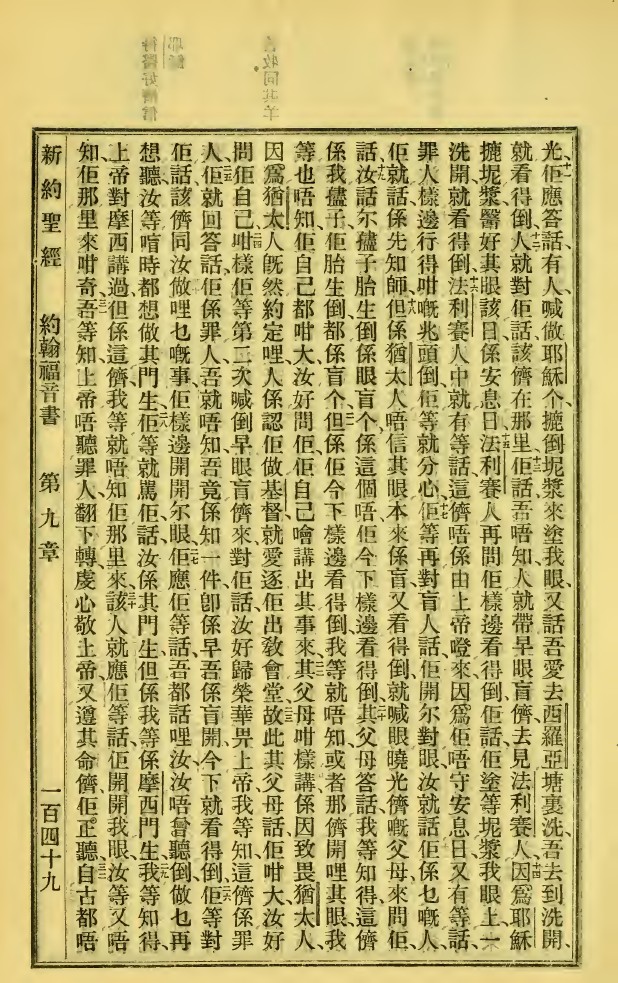 光、十一佢應答話、有人喊做耶穌个、摝倒坭漿來塗我眼、又話吾愛去西羅亞塘裏洗、吾去到洗開、
就看得倒、十二人就對佢話、該儕在那里、佢話吾唔知、十三人就帶早眼盲儕去見法利賽人、十四因爲耶穌
摝坭漿醫好其眼、該日係安息日、十五法利賽人再問佢樣邊看得倒、佢話佢塗等坭漿我眼上、一
洗開就看得倒、十六法利賽人中就有等話、這儕唔係由上帝䠬來、因爲佢唔守安息日、又有等話、
罪人樣邊行得咁嘅兆頭倒、佢等就分心、十七佢等再對盲人話、佢開尔對眼、汝就話佢係乜嘅人、
佢就話係先知師、十八但係猶太人唔信其眼本來係盲、又看得倒、就喊眼曉光儕嘅父母來問佢、
話、十九汝話尔儘子胎生倒係眼盲个、係這個唔、佢今下樣邊看得倒、二十其父母答話、我等知得這儕
係我儘子、佢胎生倒都係盲个、二一但係佢今下樣邊看得倒、我等就唔知、或者那儕開哩其眼、我
等也唔知、佢自己都咁大、汝好問佢、佢自己噲講出其事來、二二其父母咁樣講、係因致畏猶太人、
因爲猶太人旣然約定哩、人係認佢做基督、就愛逐佢出敎會堂、二三故此其父母話、佢咁大、汝好
問佢自己咁樣、二四佢等第二次喊倒早眼盲儕來、對佢話、汝好歸榮華畀上帝、我等知這儕係罪
人、二五佢就回答話、佢係罪人吾就唔知、吾竟係知一件、卽係早吾係盲開、今下就看得倒、二六佢等對
佢話、該儕同汝做哩乜嘅事、佢樣邊開開尔眼、二七佢應佢等話、吾都話哩汝、汝唔曾聽倒、做乜再
想聽、汝等喑時都想做其門生、二八佢等就罵佢話、汝係其門生、但係我等係摩西門生、二九我等知得
上帝對摩西講過、但係這儕我等就唔知佢那里來、三十該人就應佢等話、佢開開我眼、汝等又唔
知佢那里來、咁奇、三一吾等知上帝唔聽罪人、翻下轉虔心敬上帝、又遵其命儕、佢正聽、三二自古都唔
新約聖經 約翰福音書 第九章 一百四十九